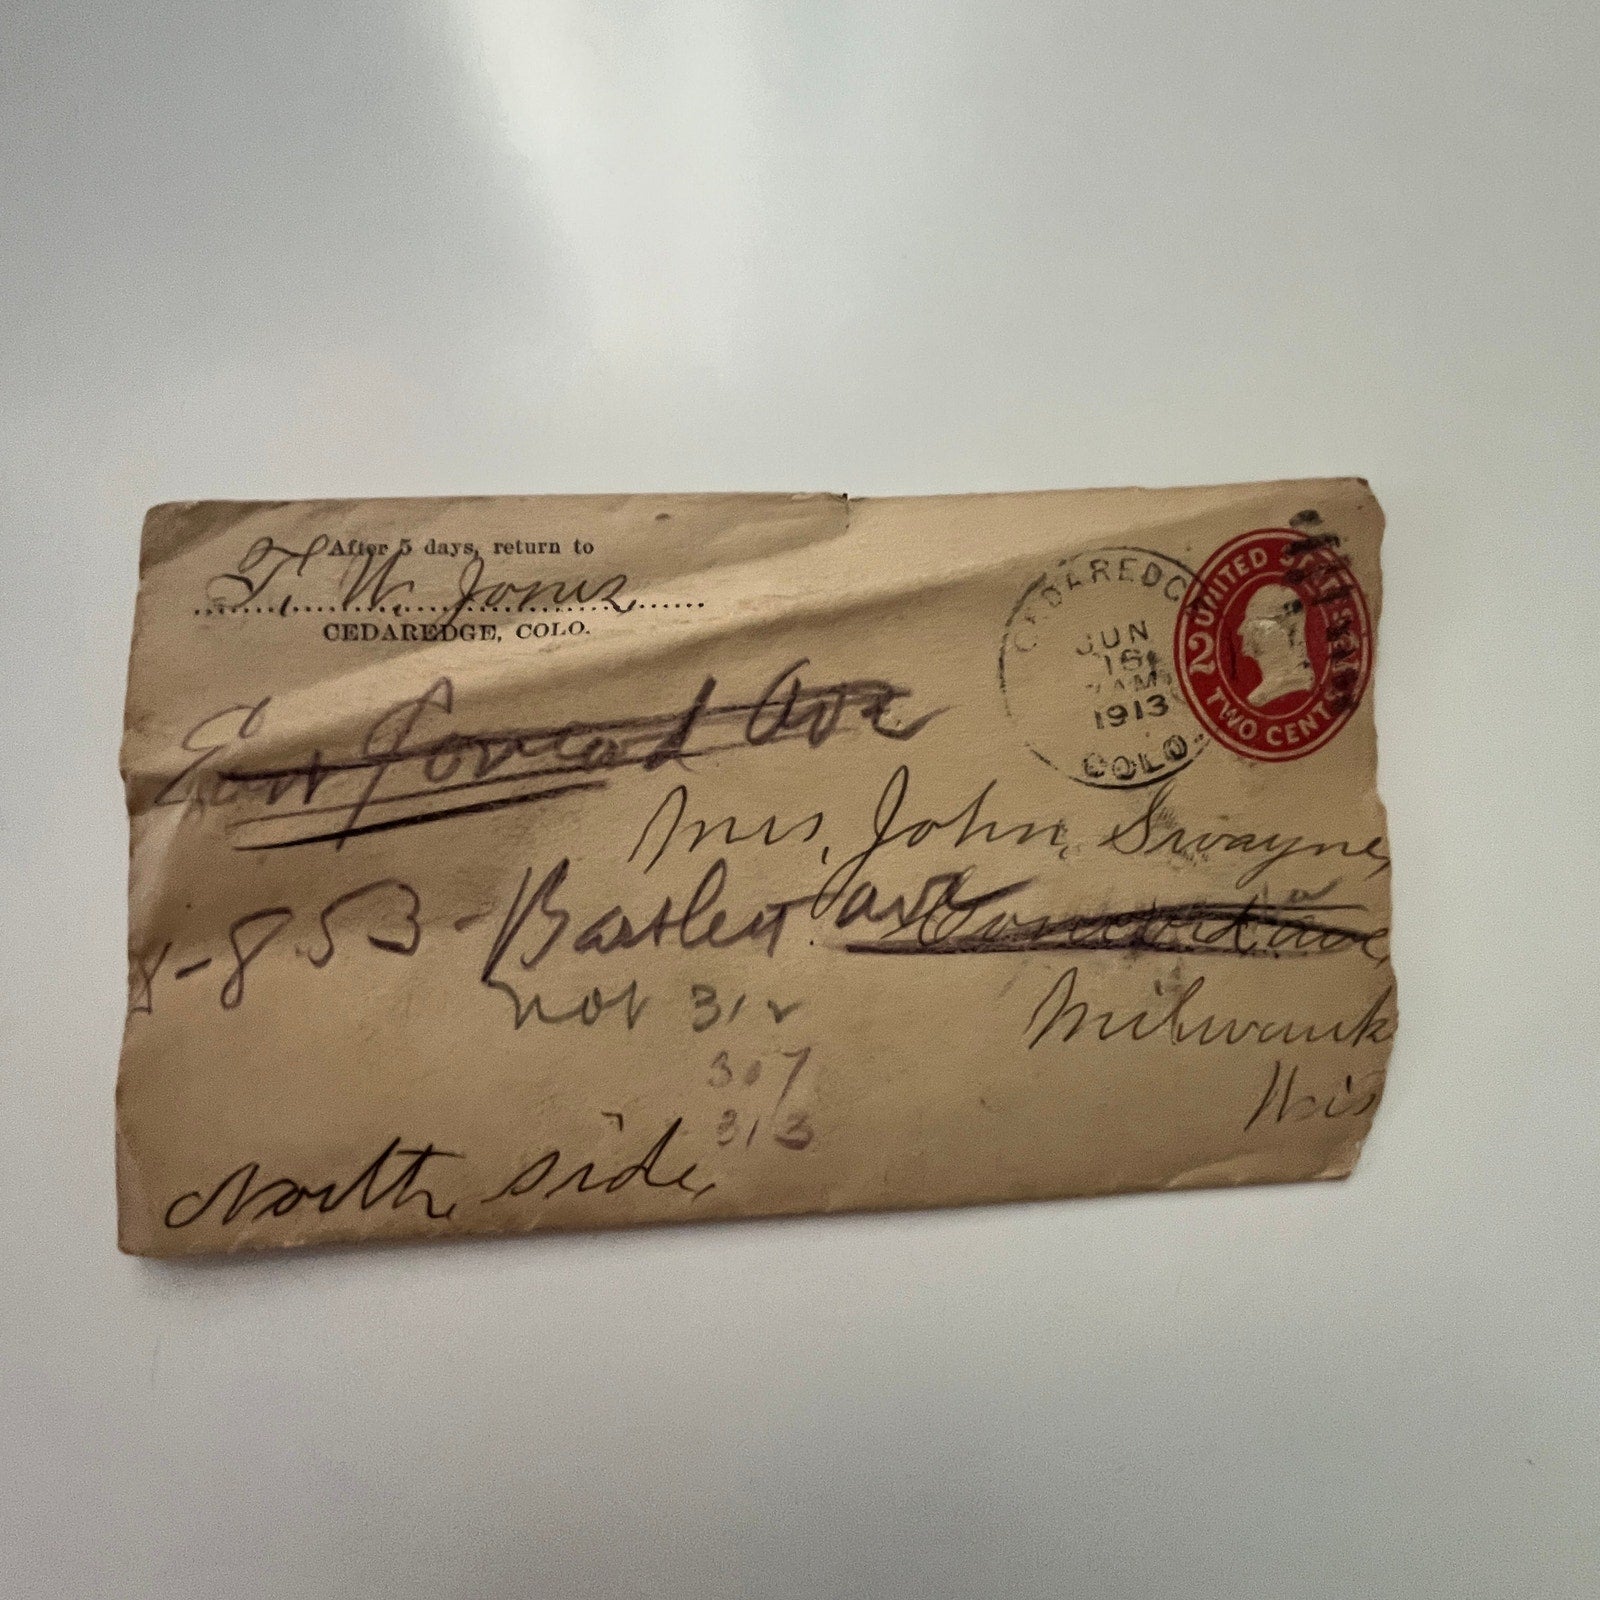 After 5 days, return to
T. W. Jones
CEDAREDGE, COLO.
CEDAREDG
JUN
16
AM
1913
COLO.
UNITED STATES
2
TWO CENT
East Concord Ave
Mrs. John, Swayne,
8-853-Bartlett ave
Concord ave,
not 312
Milwauk
317
Wis
313
North, side,